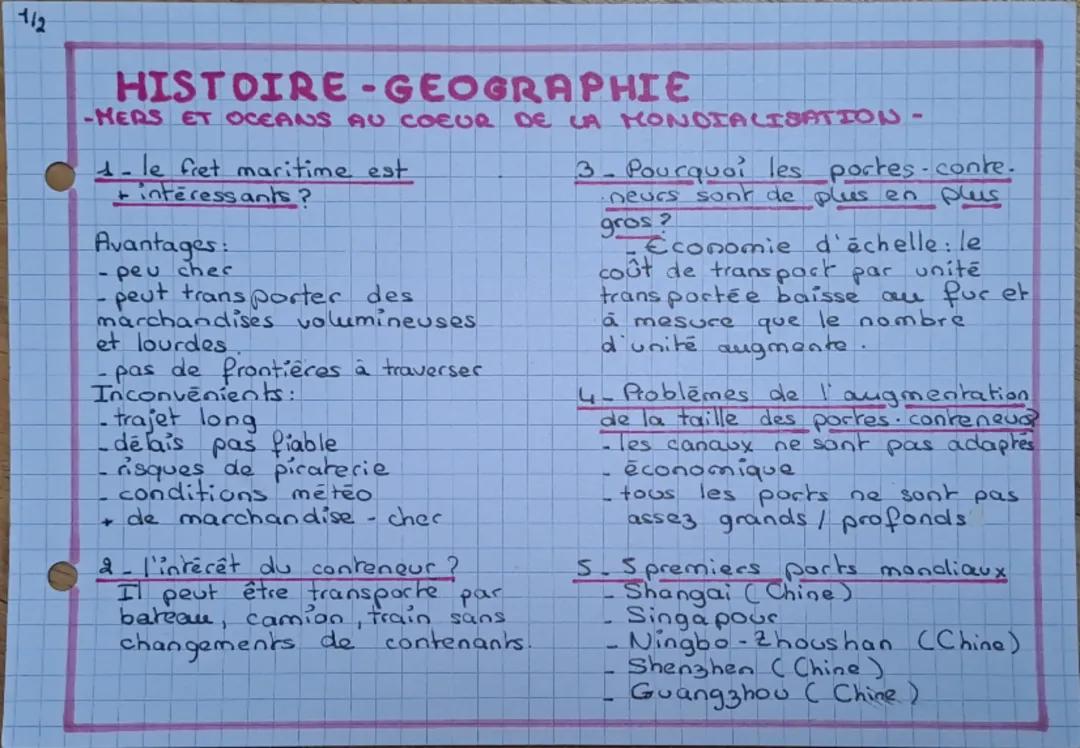 1/2
HISTOIRE-GEOGRAPHIE
-MERS ET OCEANS AU COEUR DE LA MONDIALISATION-
1- le fret maritime est
+ intéressants?
Avantages:
- peu cher
- peut transporter des
marchandises volumineuses
et lourdes.
- pas de frontières à traverser
Inconvénients:
- trajet long
- délais pas fiable
- risques de piraterie
- conditions météo
+ de marchandise - cher
2- l'intérêt du conteneur?
Il peut être transporte par
bateau, camion, train sans
changements de contenants.
3- Pourquoi les portes-conte-
neurs sont de plus en plus
gros?
- Économie d'échelle: le
coût de transport par unité
transportée baisse au fur et
à mesure que le nombre
d'unité augmente.
4- Problèmes de l'augmentation
de la taille des portes-conteneurs?
- les canaux ne sont pas adaptés
- économique
- tous les ports ne sont pas
assez grands / profonds
5- 5 premiers ports mondiaux
- Shangai (Chine)
- Singapour
- Ningbo-Zhoushan (Chine)
- Shenzhen (Chine)
- Guangzhou (Chine)